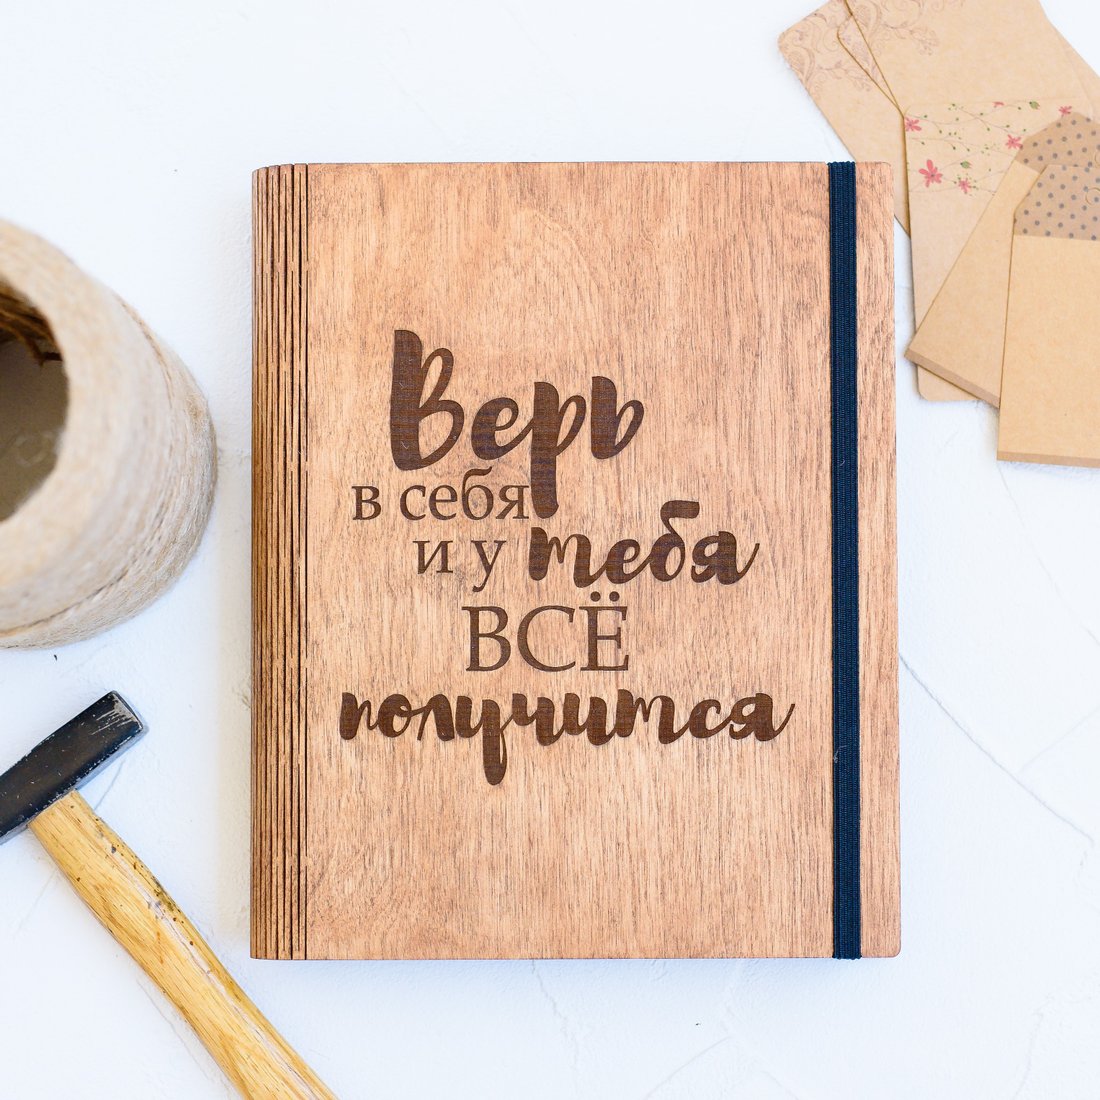 Верь
в себя
и у тебя
ВСЁ
получится